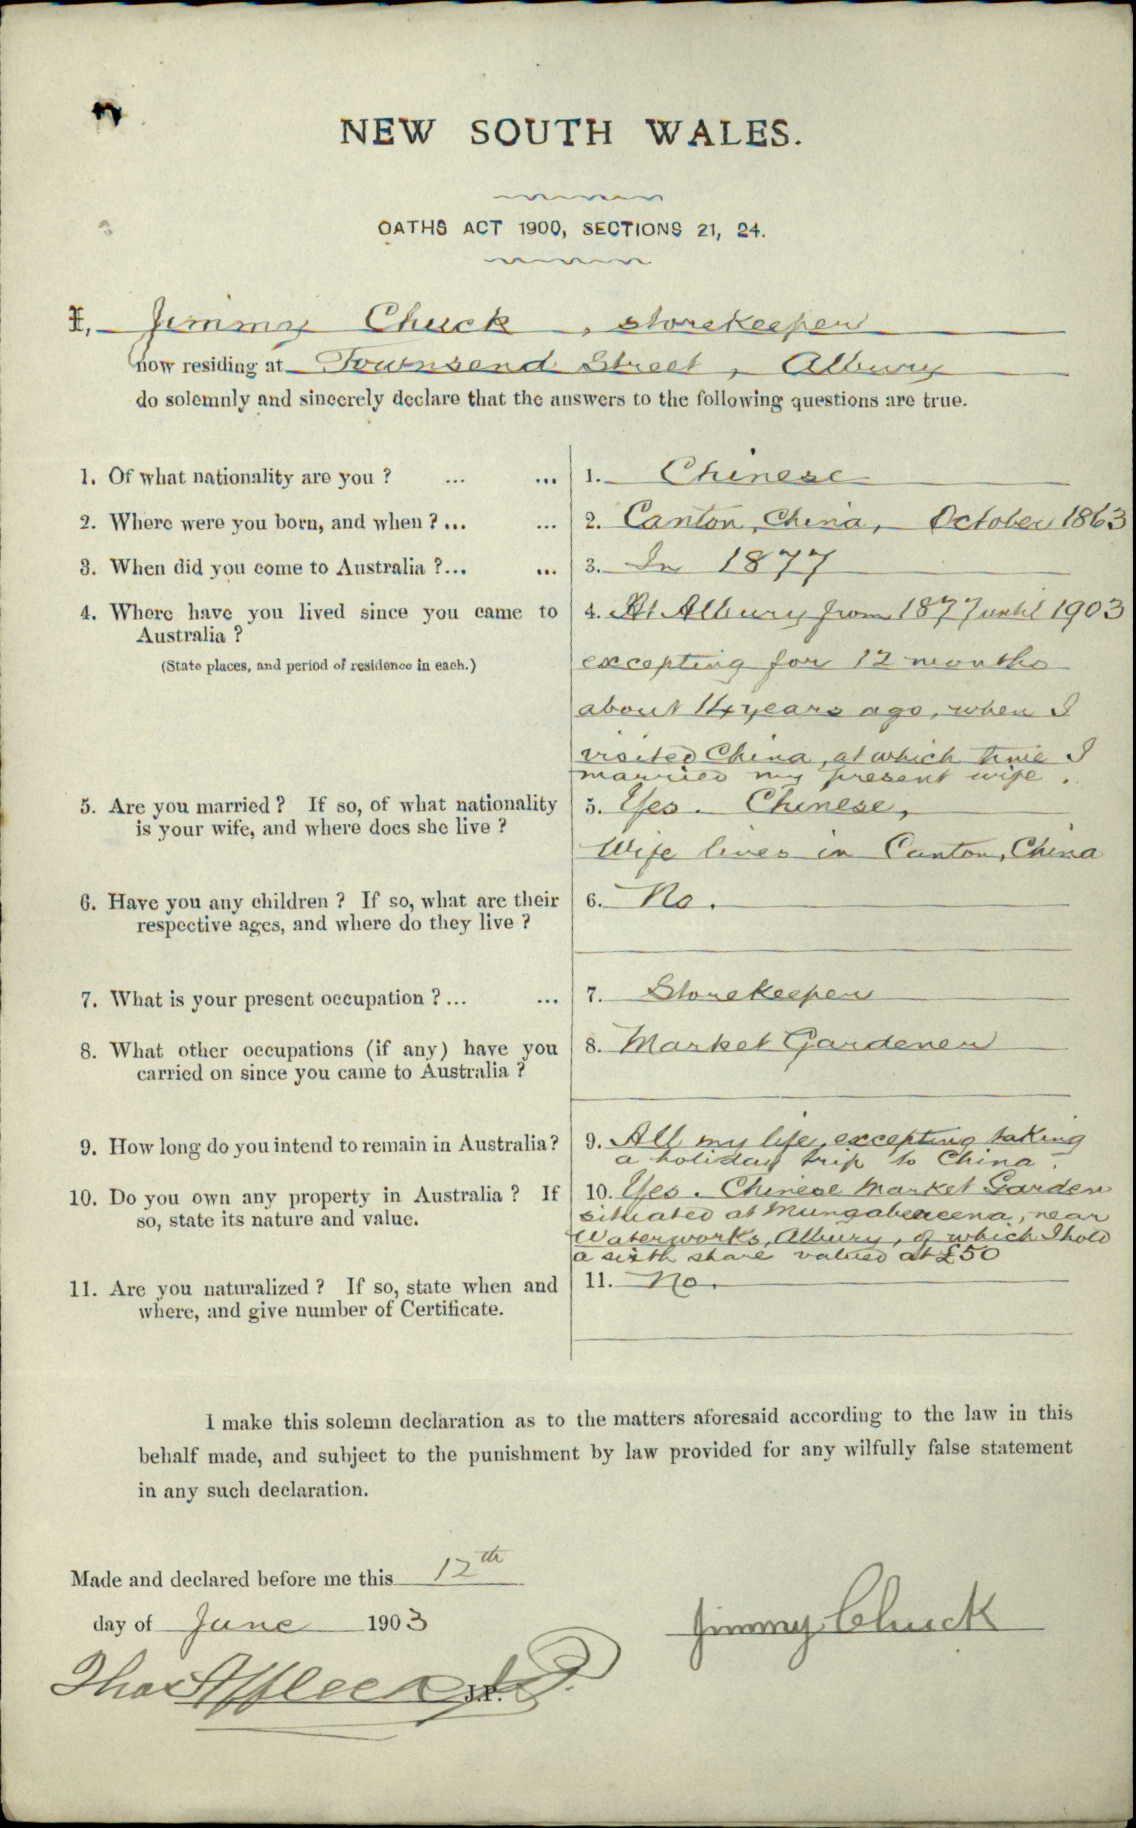 NEW SOUTH WALES.
OATHS ACT 1900, SECTIONS 21, 24.
I, Jimmy Chuck, storekeeper
now residing at Townsend Street, Albury
do solemnly and sincerely declare that the answers to the following questions are true.
1. Of what nationality are you ? ... ... 1. Chinese
2. Where were you born, and when ? ... ... 2. Canton, China, October 1863
3. When did you come to Australia ? ... ... 3. In 1877
4. Where have you lived since you came to 4. At Albury from 1877 until 1903
Australia ?
(State places, and period of residence in each.) excepting for 12 months
about 14 years ago, when I
visited China, at which time I
married my present wife.
5. Are you married ? If so, of what nationality 5. Yes. Chinese,
is your wife, and where does she live ?
Wife lives in Canton, China
6. Have you any children ? If so, what are their 6. No.
respective ages, and where do they live ?
7. What is your present occupation ? ... ... 7. Storekeeper
8. What other occupations (if any) have you 8. Market Gardener
carried on since you came to Australia ?
9. How long do you intend to remain in Australia ? 9. All my life, excepting taking
a holiday trip to China.
10. Do you own any property in Australia ? If 10. Yes. Chinese Market Garden
so, state its nature and value. situated at Mungabareena, near
Waterworks, Albury, of which I hold
a sixth share valued at £50
11. Are you naturalized ? If so, state when and 11. No.
where, and give number of Certificate.
I make this solemn declaration as to the matters aforesaid according to the law in this
behalf made, and subject to the punishment by law provided for any wilfully false statement
in any such declaration.
Made and declared before me this 12th
day of June 1903
Jimmy Chuck
Thos Affleck J.P. J.P.